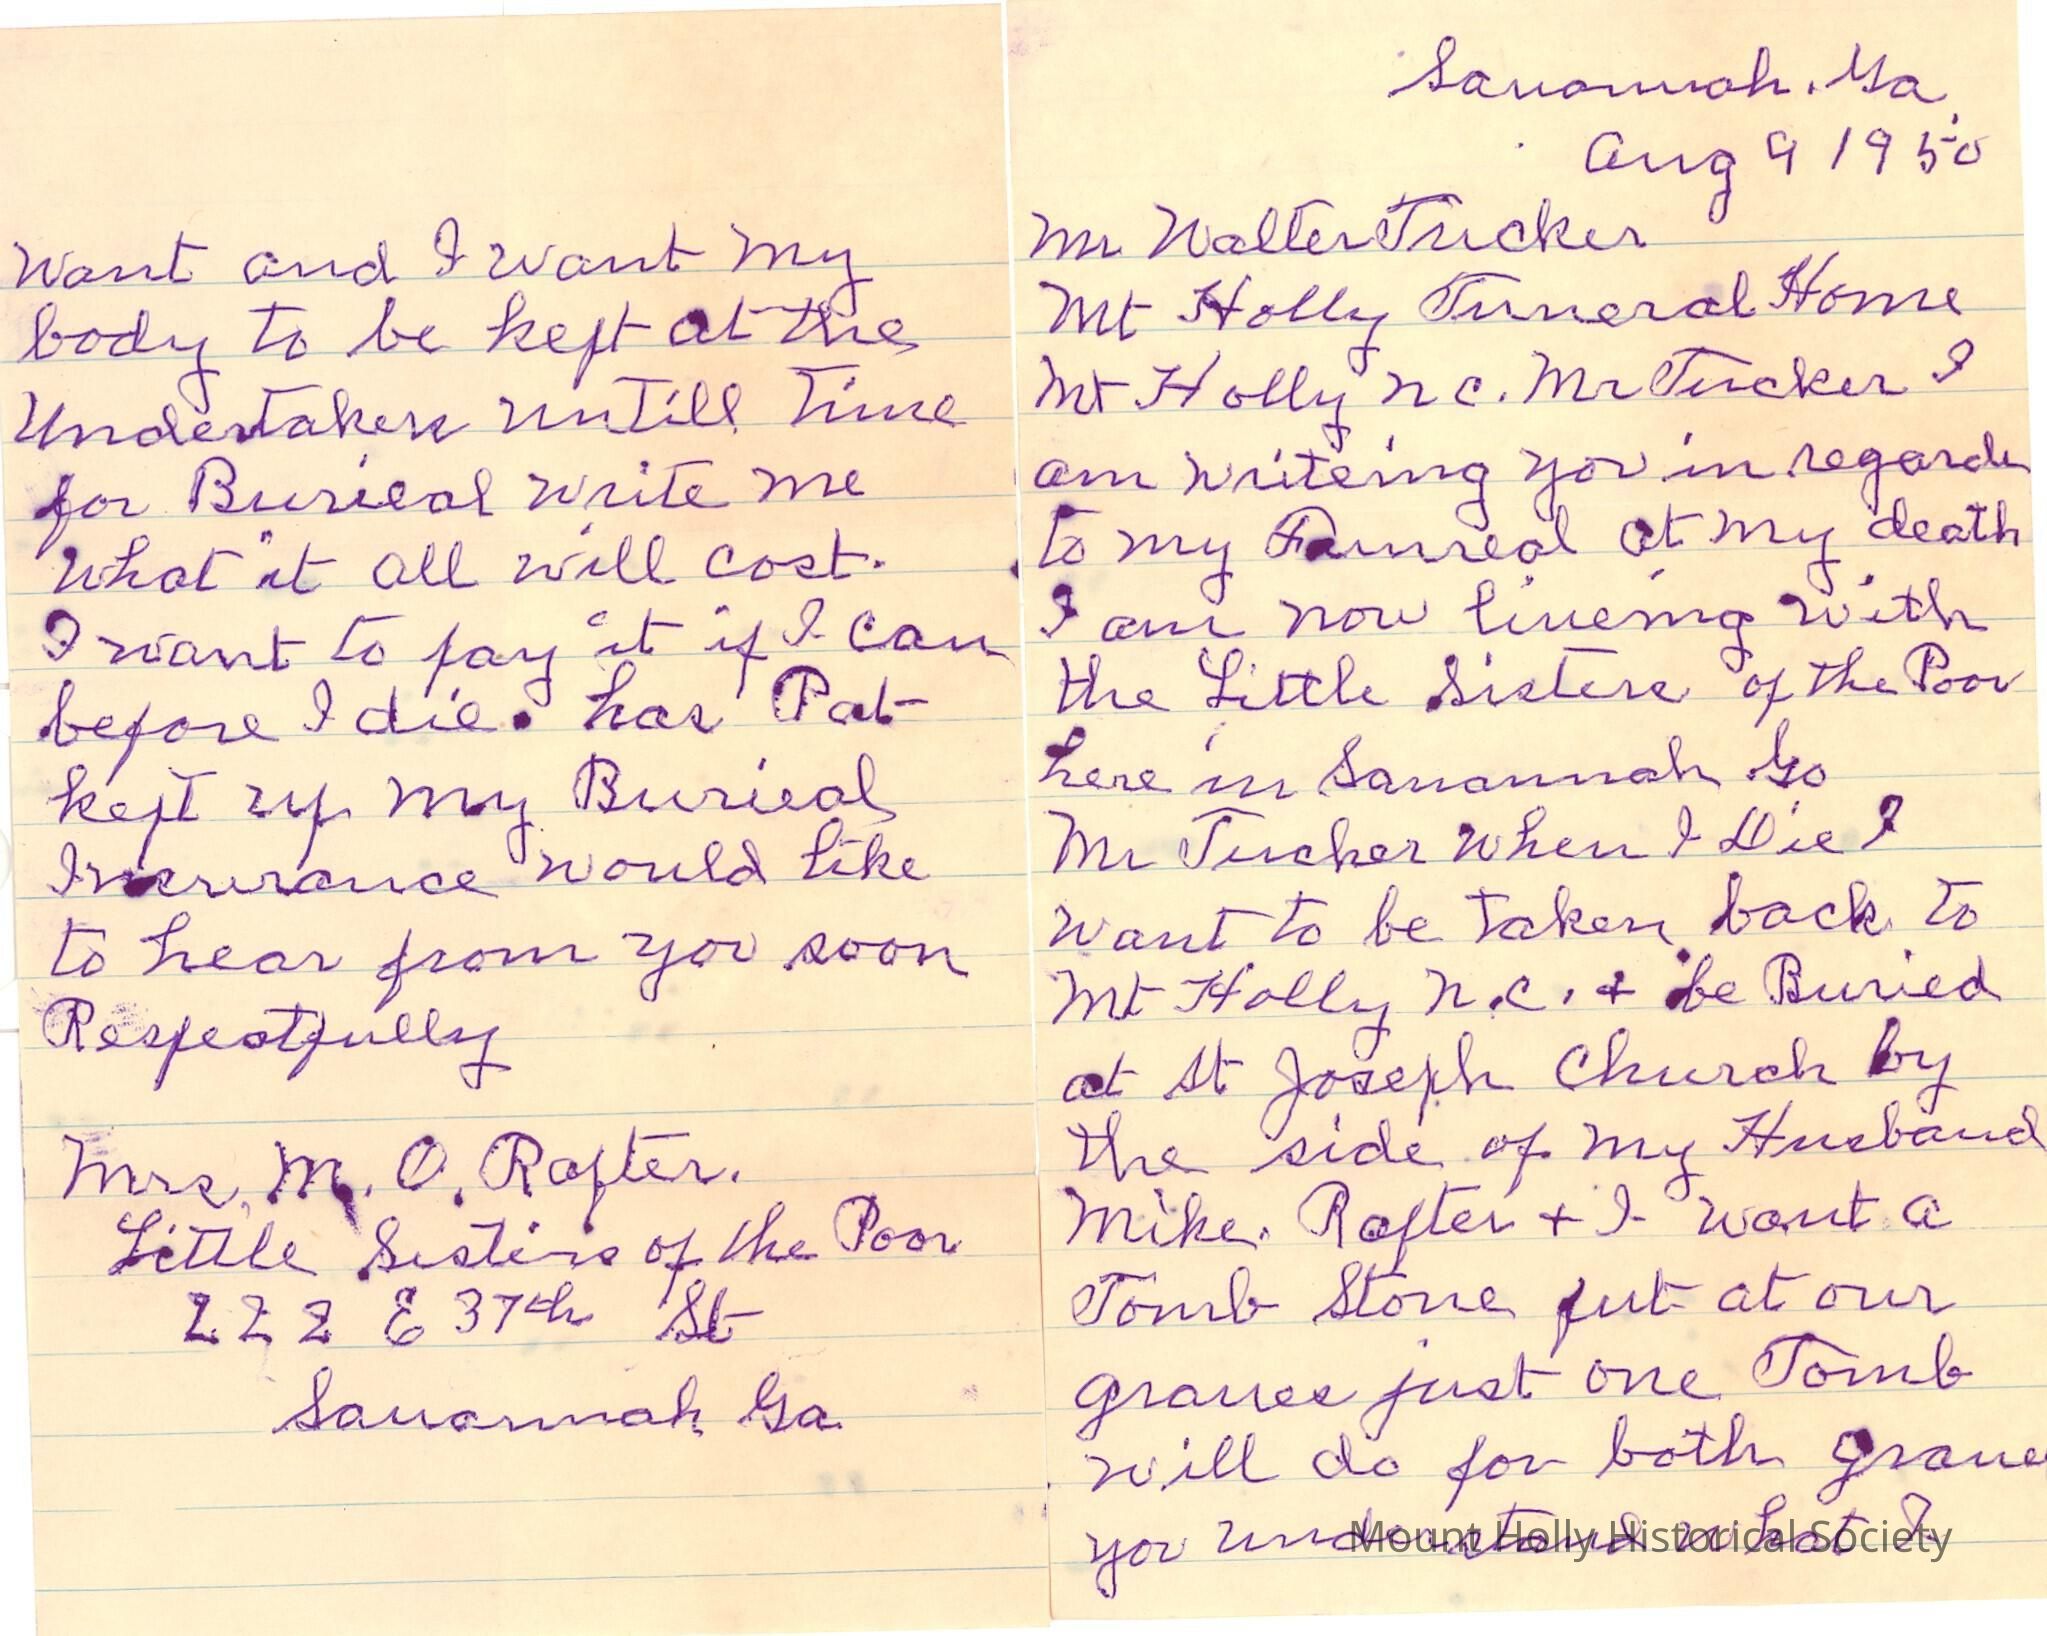 Savannah. Ga.
Aug 9 1950
Mr Walter Tucker
Mt Holly Funeral Home
Mt Holly n c. Mr Tucker I
am writeing you in regards
to my Funreal at my death
I am now liveing with
the Little Sisters of the Poor
here in Savannah Ga
Mr Tucker when I Die I
want to be taken back to
Mt Holly N.C. + be Buried
at St Joseph Church by
the side of my Husband
Mike. Rafter + I want a
Tomb Stone put at our
graves just one Tomb
will do for both graves
you understand what I
Mount Holly Historical Society
want and I want my
body to be kept at the
Undertakers untill time
for Burieal write me
what it all will cost.
I want to pay it if I can
before I die. has Pat
kept up my Burieal
Insurance would like
to hear from you soon
Respectfully
Mrs. M. O. Rafter.
Little Sisters of the Poor
222 E 37th St
Savannah Ga.